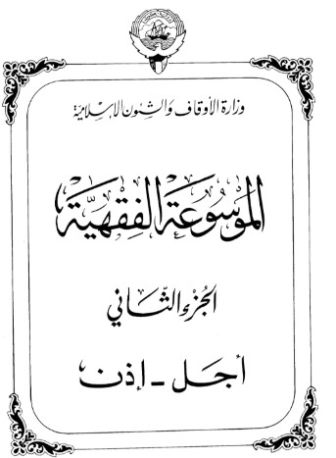 وزارة الأوقاف والشئون الإسلامية
الموسوعة الفقهية
الجزء الثاني
أجل - إذن